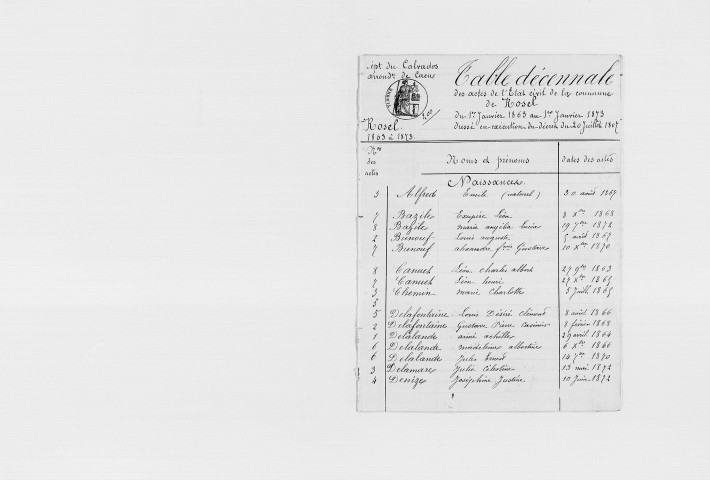 Dépt du Calvados
arrondt de Caen
Rosel.
1863 à 1873.
Table décennale
des actes de l'Etat civil de la commune
de Rosel
du 1er Janvier 1863 au 1er Janvier 1873
dressé en exécution du décret du 20 Juillet 1807
Nos des actes Noms et prénoms dates des actes
Naissances.
3 Alfred Emile (naturel) 30 août 1869
7 Bazile Exupère Léon 8 Xbre 1868
8 Bazile maria 19 7bre 1872
2 Binouf Louis auguste 5 avril 1867
7 Binouf alexandre Gustave 10 Xbre 1870
8 Canuet Léon charles albert 27 9bre 1863
7 Canuet Léon henri 27 Xbre 1865
3 Chemin marie Charlotte 5 Juill. 1865
5
5 Delafontaine Louis Désiré Clément 8 août 1866
2 Delafontaine Gustave Pierre casimir 8 février 1868
1 Delalande aimé achille 29 avril 1864
6 Delalande madeleine albertine 6 Xbre 1866
6 Delalande Jules Ernest 14 7bre 1870
3 Delamare Julia Célestine 13 mai 1872
4 Denize Joséphine Justine 10 Juin 1872